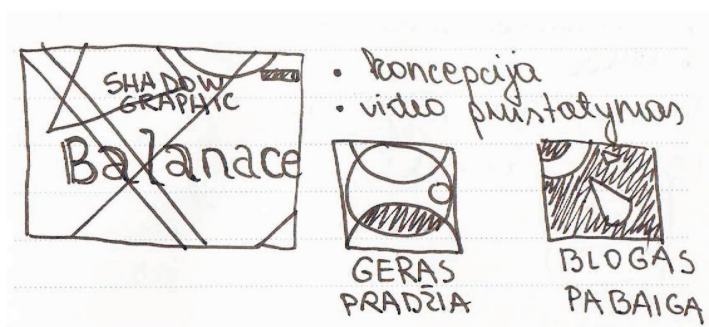 SHADOW
GRAPHIC
Balanace
• koncepcija
• video pristatymas
GERAS
PRADŽIA
BLOGAS
PABAIGA